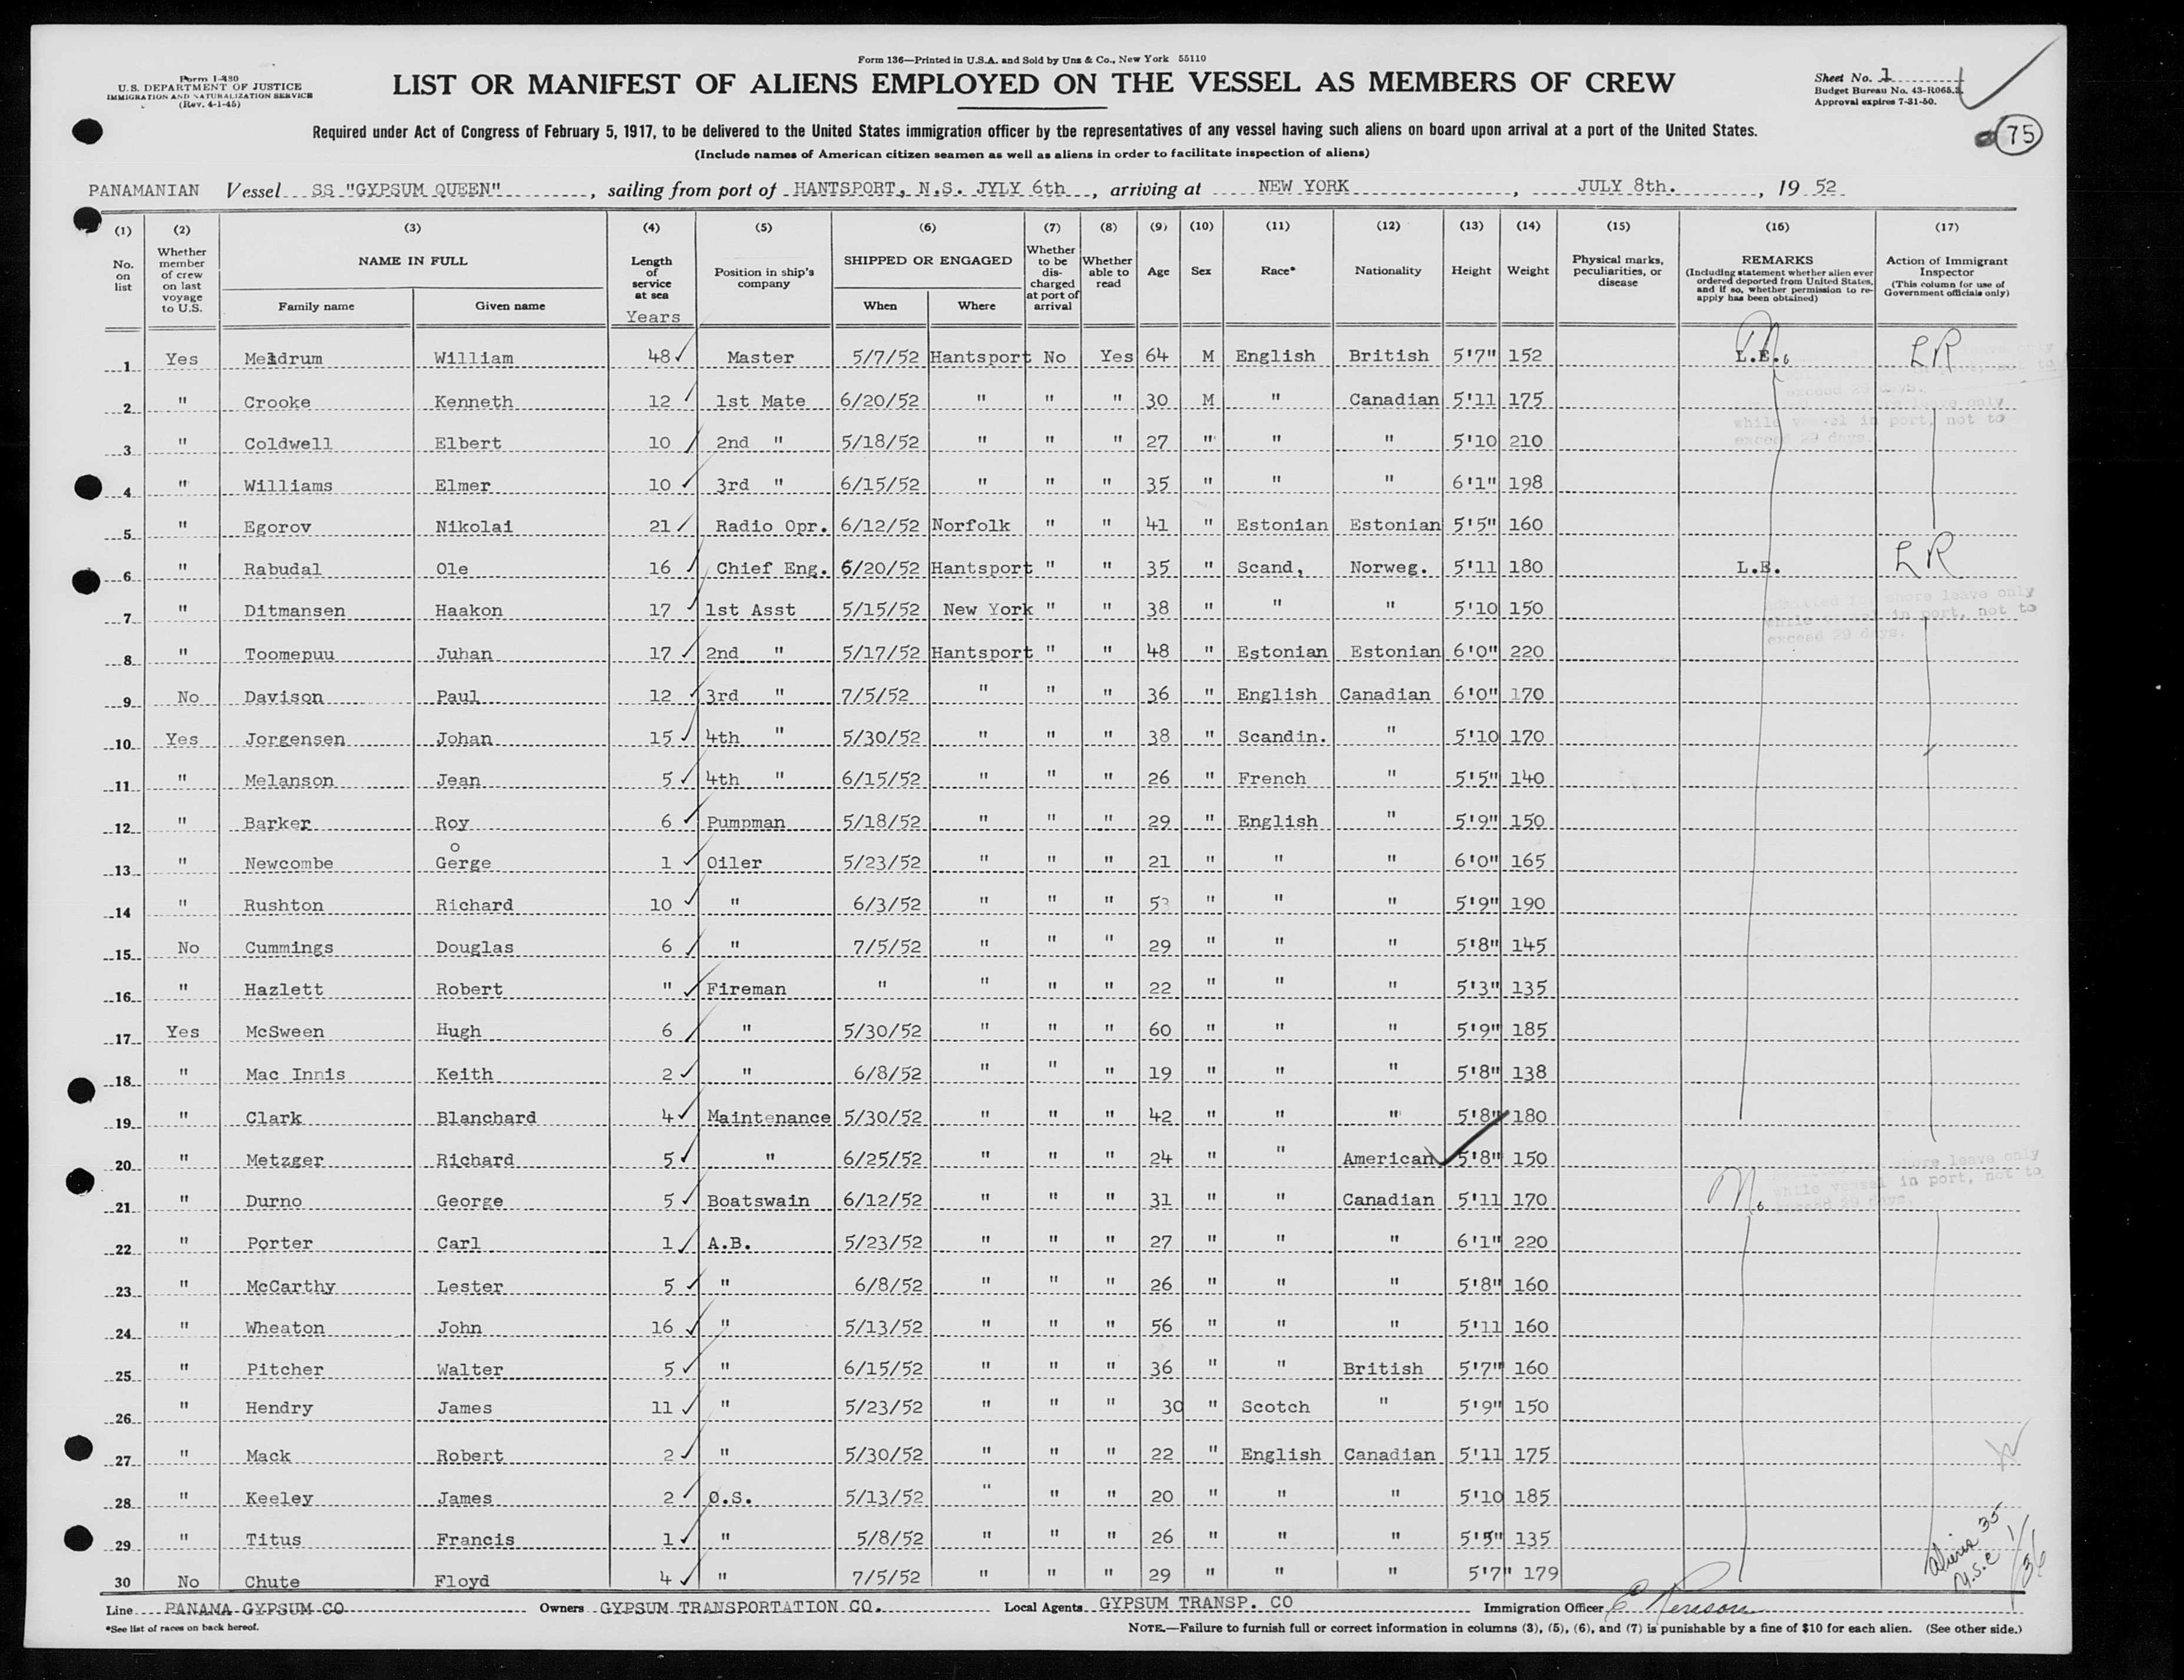 Form 136—Printed in U.S.A. and Sold by Unz & Co., New York 55110
Form I-480
U.S. DEPARTMENT OF JUSTICE
IMMIGRATION AND NATURALIZATION SERVICE
(Rev. 4-1-45)
LIST OR MANIFEST OF ALIENS EMPLOYED ON THE VESSEL AS MEMBERS OF CREW
Sheet No. 1
Budget Bureau No. 43-R065.3.
Approval expires 7-31-50.
75
Required under Act of Congress of February 5, 1917, to be delivered to the United States immigration officer by the representatives of any vessel having such aliens on board upon arrival at a port of the United States.
(Include names of American citizen seamen as well as aliens in order to facilitate inspection of aliens)
PANAMANIAN Vessel SS "GYPSUM QUEEN", sailing from port of HANTSPORT, N.S. JYLY 6th, arriving at NEW YORK, JULY 8th., 19 52
(1) (2) (3) (4) (5) (6) (7) (8) (9) (10) (11) (12) (13) (14) (15) (16) (17)
No. on list
Whether member of crew on last voyage to U.S.
NAME IN FULL
Family name Given name
Length of service at sea
Years
Position in ship's company
SHIPPED OR ENGAGED
When Where
Whether to be discharged at port of arrival
Whether able to read
Age
Sex
Race*
Nationality
Height
Weight
Physical marks, peculiarities, or disease
REMARKS
(Including statement whether alien ever ordered deported from United States, and if so, whether permission to reapply has been obtained)
Action of Immigrant Inspector
(This column for use of Government officials only)
1 Yes Meldrum William 48 Master 5/7/52 Hantsport No Yes 64 M English British 5'7" 152 L.E. LR
2 " Crooke Kenneth 12 1st Mate 6/20/52 " " " 30 M " Canadian 5'11 175
3 " Coldwell Elbert 10 2nd " 5/18/52 " " " 27 " " " 5'10 210
4 " Williams Elmer 10 3rd " 6/15/52 " " " 35 " " " 6'1" 198
5 " Egorov Nikolai 21 Radio Opr. 6/12/52 Norfolk " " 41 " Estonian Estonian 5'5" 160
6 " Rabudal Ole 16 Chief Eng. 6/20/52 Hantsport " " 35 " Scand, Norweg. 5'11 180 L.E. LR
7 " Ditmansen Haakon 17 1st Asst 5/15/52 New York " " 38 " " " 5'10 150
shore leave only
while vessel in port, not to
exceed 29 days.
8 " Toomepuu Juhan 17 2nd " 5/17/52 Hantsport " " 48 " Estonian Estonian 6'0" 220
9 No Davison Paul 12 3rd " 7/5/52 " " " 36 " English Canadian 6'0" 170
10 Yes Jorgensen Johan 15 4th " 5/30/52 " " " 38 " Scandin. " 5'10 170
11 " Melanson Jean 5 4th " 6/15/52 " " " 26 " French " 5'5" 140
12 " Barker Roy 6 Pumpman 5/18/52 " " " 29 " English " 5'9" 150
o
13 " Newcombe Gerge 1 Oiler 5/23/52 " " " 21 " " " 6'0" 165
14 " Rushton Richard 10 " 6/3/52 " " " " " " 5'9" 190
15 No Cummings Douglas 6 " 7/5/52 " " " 29 " " " 5'8" 145
16 " Hazlett Robert " Fireman " " " " 22 " " " 5'3" 135
17 Yes McSween Hugh 6 " 5/30/52 " " " 60 " " " 5'9" 185
18 " Mac Innis Keith 2 " 6/8/52 " " " 19 " " " 5'8" 138
19 " Clark Blanchard 4 Maintenance 5/30/52 " " " 42 " " " 5'8" 180
20 " Metzger Richard 5 " 6/25/52 " " " 24 " " American 5'8" 150
shore leave only
while vessel in port, not to
exceed 29 days.
21 " Durno George 5 Boatswain 6/12/52 " " " 31 " " Canadian 5'11 170
22 " Porter Carl 1 A.B. 5/23/52 " " " 27 " " " 6'1" 220
23 " McCarthy Lester 5 " 6/8/52 " " " 26 " " " 5'8" 160
24 " Wheaton John 16 " 5/13/52 " " " 56 " " " 5'11 160
25 " Pitcher Walter 5 " 6/15/52 " " " 36 " " British 5'7" 160
26 " Hendry James 11 " 5/23/52 " " " 30 " Scotch " 5'9" 150
27 " Mack Robert 2 " 5/30/52 " " " 22 " English Canadian 5'11 175
28 " Keeley James 2 O.S. 5/13/52 " " " 20 " " " 5'10 185
29 " Titus Francis 1 " 5/8/52 " " " 26 " " " 5'5" 135
30 No Chute Floyd 4 " 7/5/52 " " " 29 " " " 5'7" 179
Aliens 35
U.S.C 1
36
Line PANAMA GYPSUM CO Owners GYPSUM TRANSPORTATION CO. Local Agents GYPSUM TRANSP. CO Immigration Officer
*See list of races on back hereof.
NOTE.—Failure to furnish full or correct information in columns (3), (5), (6), and (7) is punishable by a fine of $10 for each alien. (See other side.)